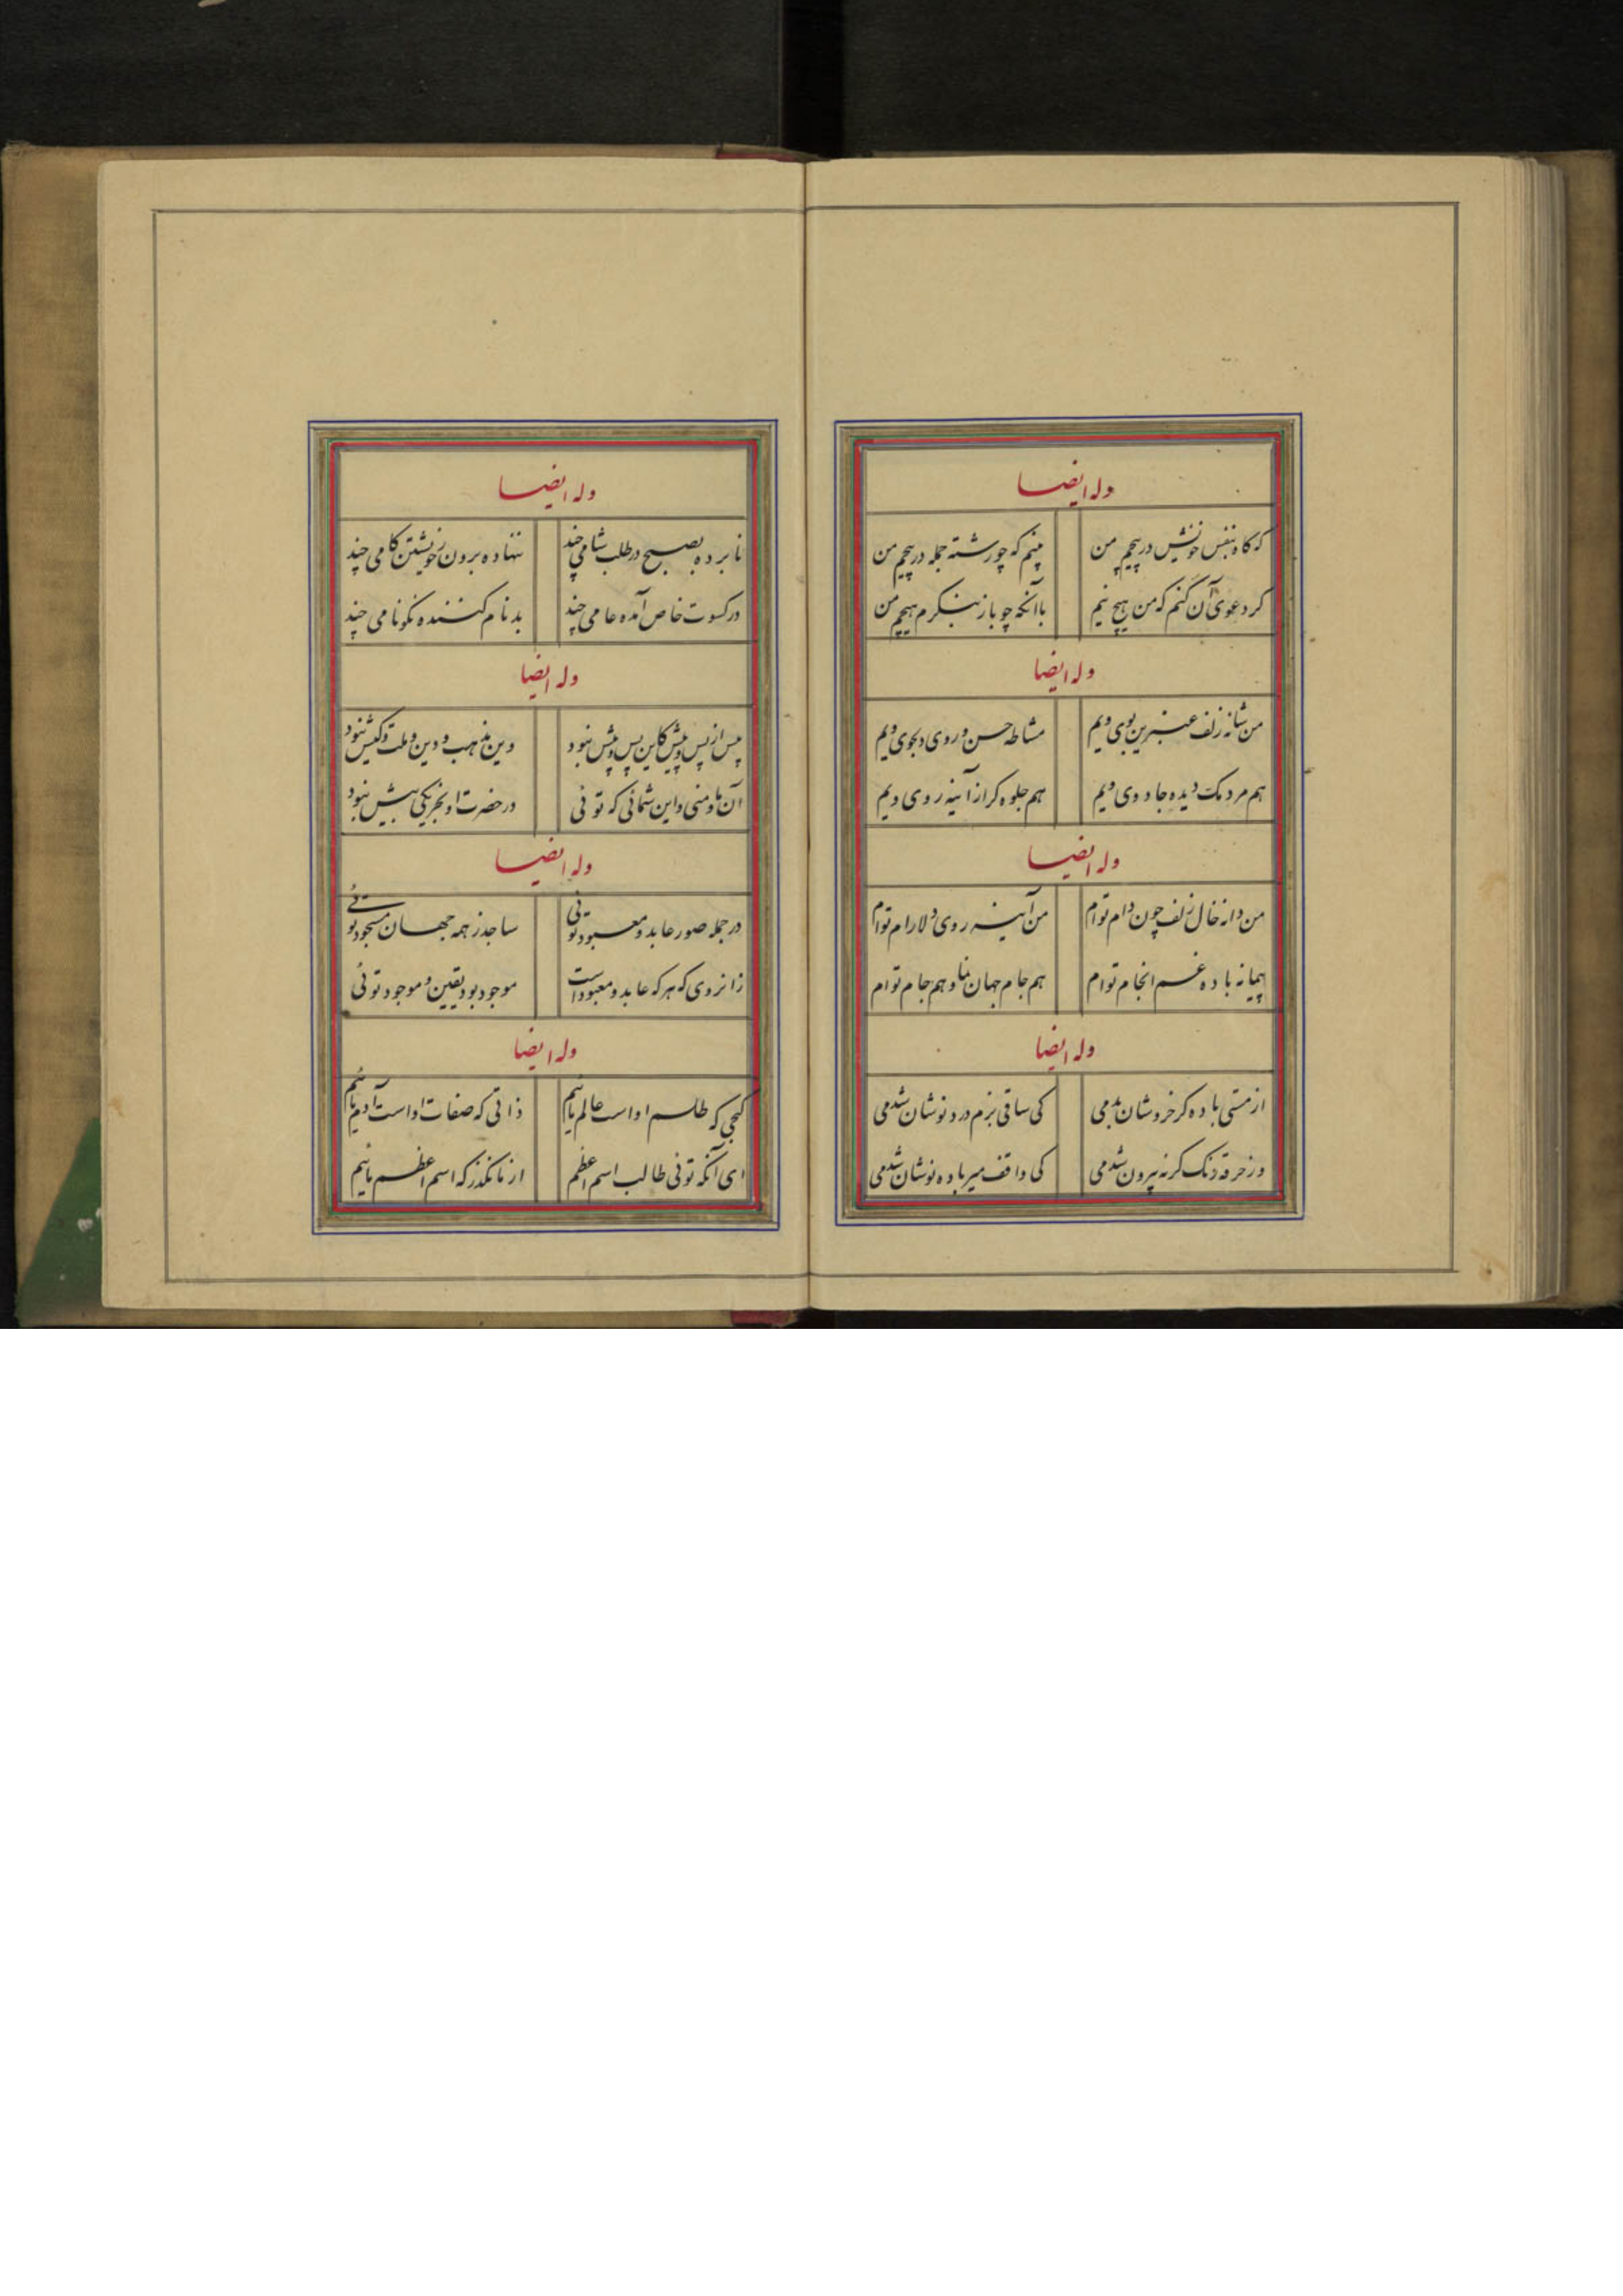 وله ایضا
که کاه بنفس خویش در پیچم من
بینم که چو رشته جمله در پیچم من
کر دعوی آن کنم که من هیچ نیم
با آنکه چو باز بنکرم هیچم من
وله ایضا
من شانه زلف عنبرین بوی ویم
مشاطه حسن و روی دلجوی ویم
هم مردمک دیده جادوی ویم
هم جلوه کر از آینه روی ویم
وله ایضا
من دانه خال زلف چون دام توام
من آینه روی دلارام توام
پیمانه باده غم انجام توام
هم جام جهان نما و هم جام توام
وله ایضا
از مستی باده کر خروشان بدمی
کی ساقی بزم درد نوشان شدمی
ور خرقه کرنه بیرون شدمی
کی واقف میر باده نوشان شدمی
وله ایضا
نابرده بصبح در طلب شامی چند
ننهاده برون ز خویشتن کامی چند
در کسوت خاص آمده عامی چند
بدنام کننده نکونامی چند
وله ایضا
پس از پس و پیش کاین پس و پیش نبود
وین مذهب و دین و ملت و کیش نبود
آن ما و منی و این شمائی که توئی
در حضرت او بجز یکی بیش نبود
وله ایضا
در جمله صور عابد و معبود توئی
ساجد ز همه جهان مسجود توئی
زانروی که هر که عابد و معبود است
موجود بود یقین و موجود توئی
وله ایضا
کنجی که طلسم او است عالم مائیم
ذاتی که صفات او است آدم مائیم
ای آنکه توئی طالب اسم اعظم
از ما مکذر که اسم اعظم مائیم